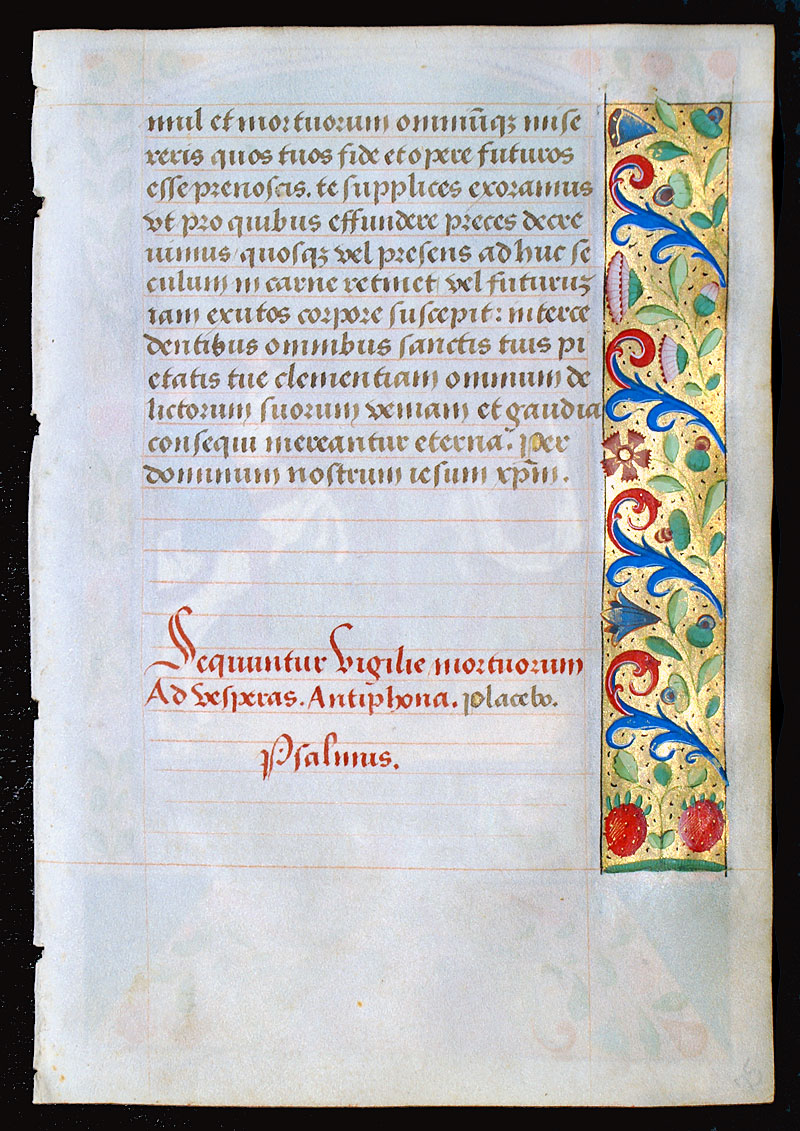 mul et mortuorum omniūqꝫ mise
reris quos tuos fide et opere futuros
esse prenoscis. te supplices exoramus
vt pro quibus effundere preces decre
uimus quosqꝫ vel presens adhuc se
culum in carne retinet vel futuruꝫ
iam exutos corpore suscepit: interce
dentibus omnibus sanctis tuis pi
etatis tue clementiam omnium de
lictorum suorum veniam et gaudia
consequi mereantur eterna. Per
dominum nostrum iesum xp̄m.
Sequuntur Vigilie mortuorum
Ad vesperas. Antiphona. Placebo.
Psalmus.